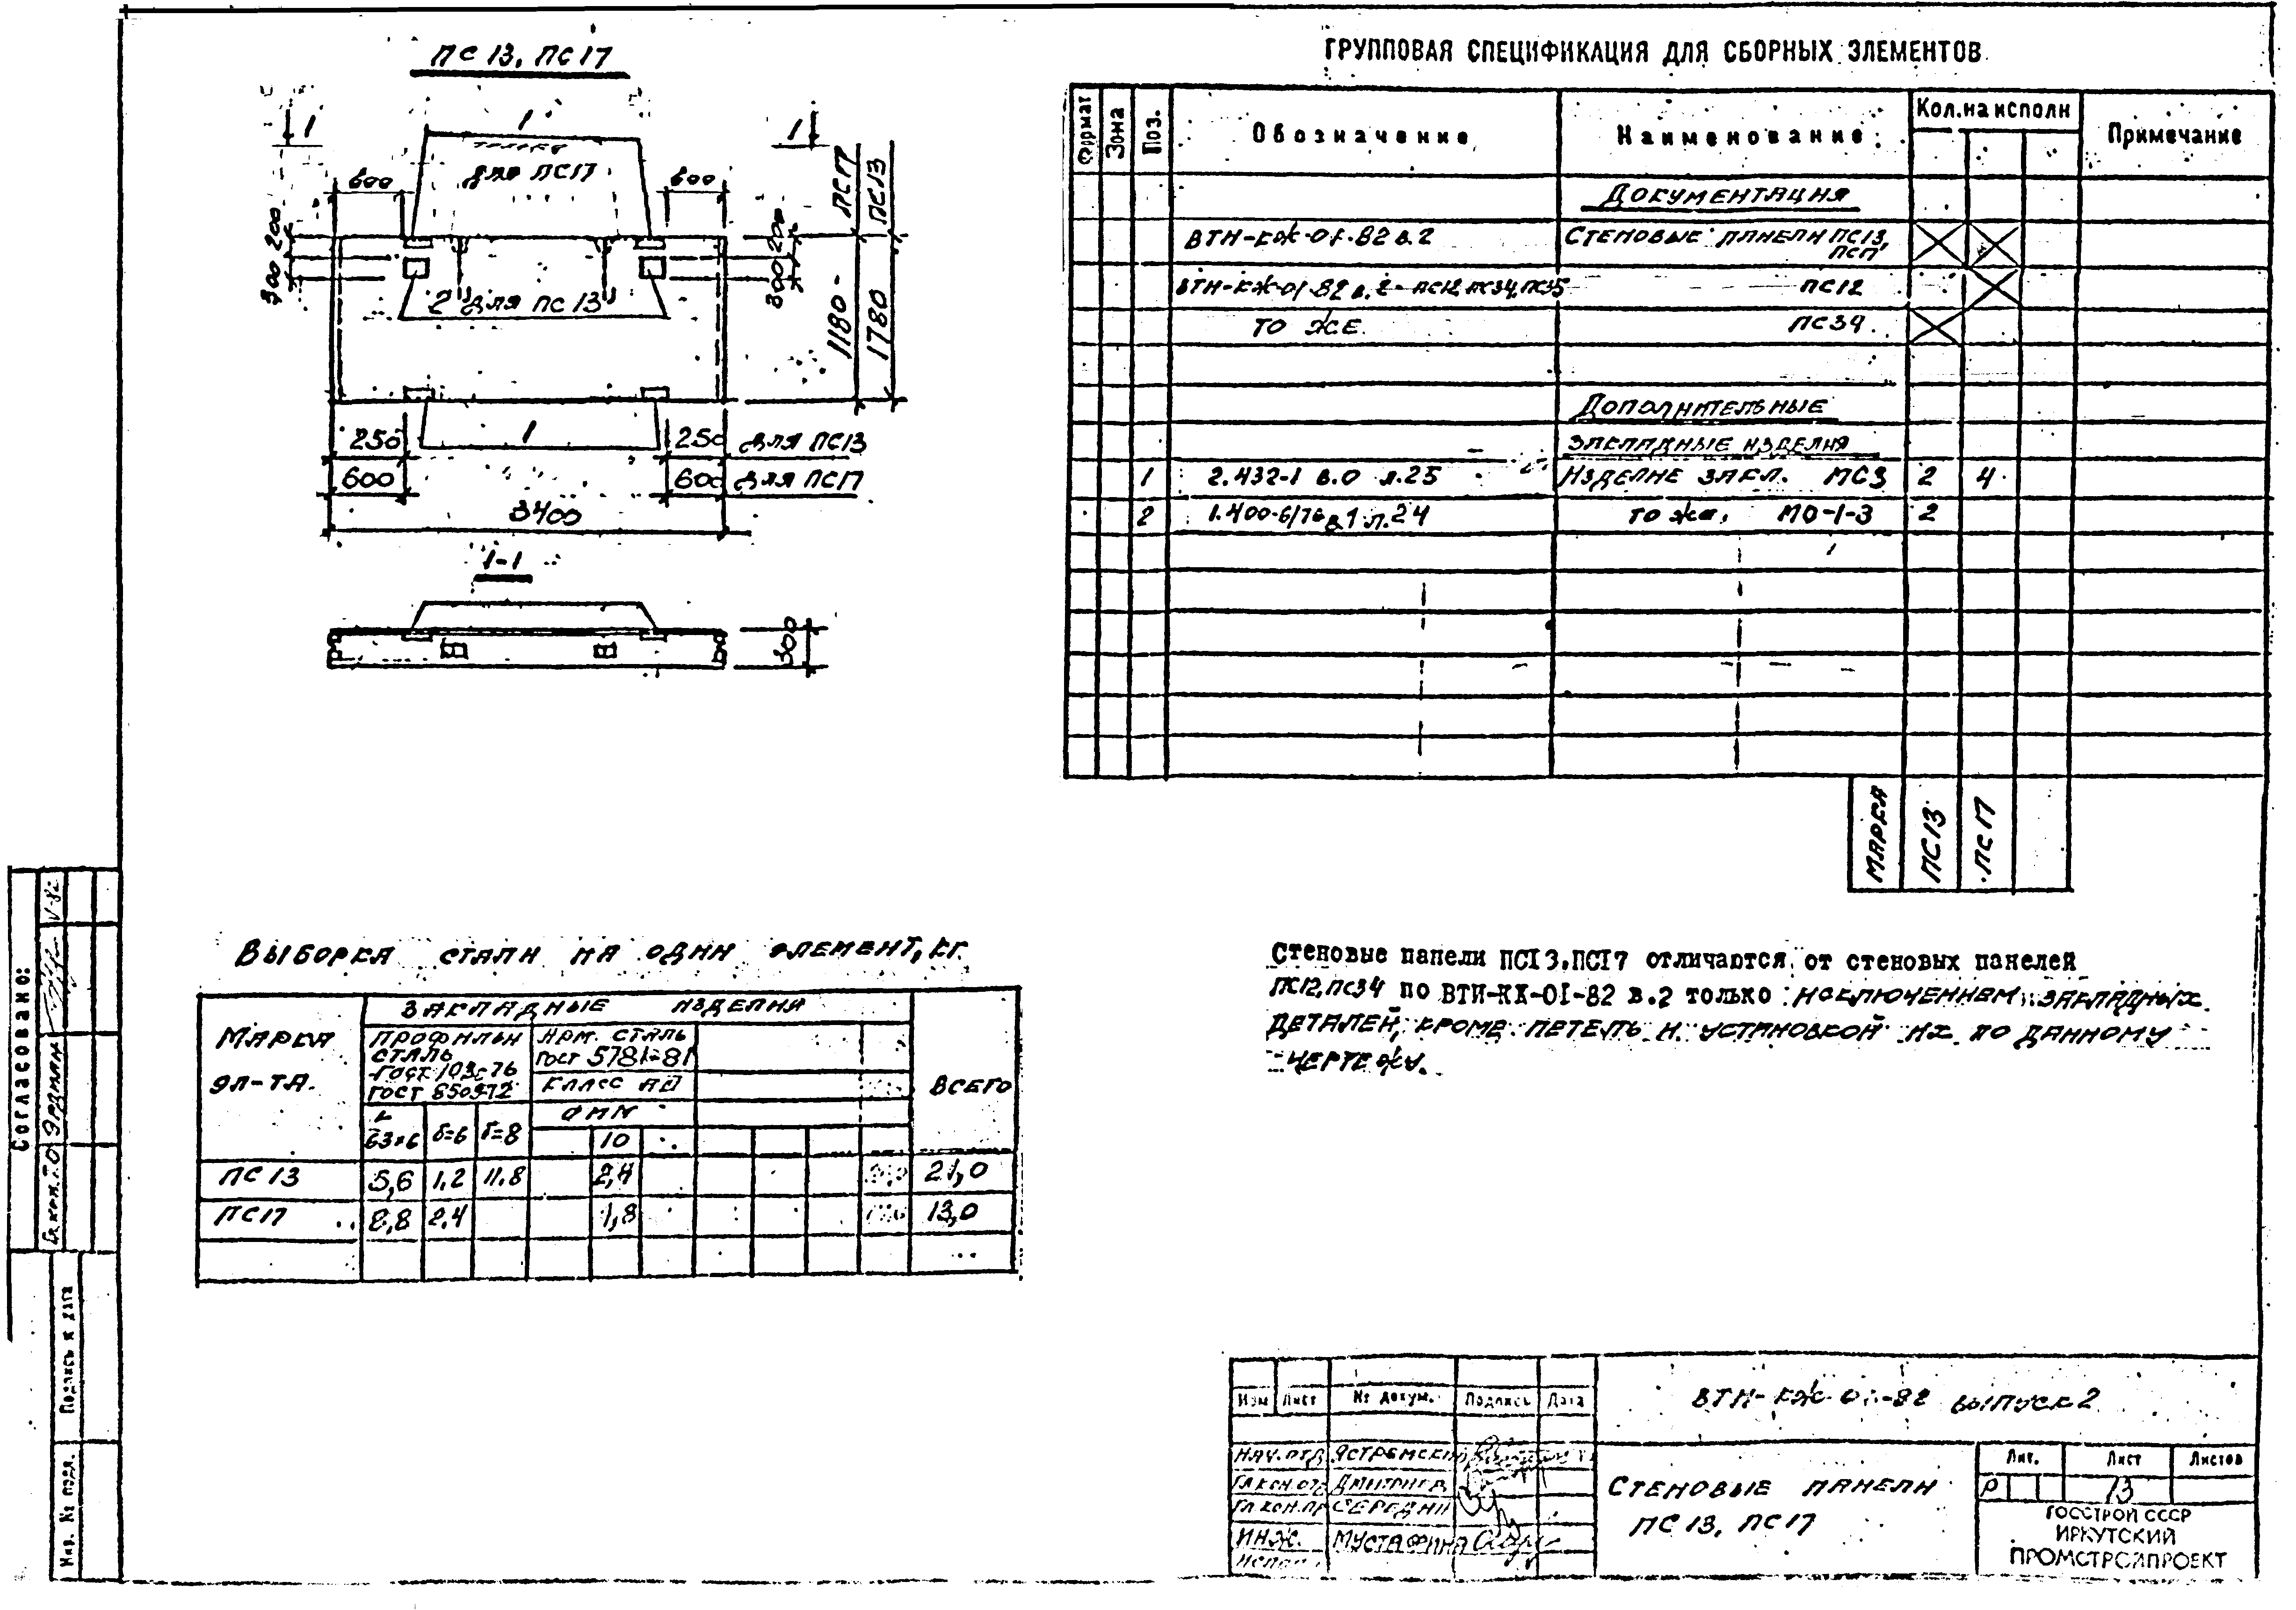 ПС 13, ПС 17
1
1
1
только
для ПС17
600
600
200
300
200
300
2 для ПС 13
1180 - ПС17
1780 ПС13
250
1
250
для ПС13
600
600
для ПС17
3400
1-1
300
ГРУППОВАЯ СПЕЦИФИКАЦИЯ ДЛЯ СБОРНЫХ ЭЛЕМЕНТОВ
Формат
Зона
Поз.
Обозначение
Наименование
Кол. на исполн
Примечание
Документация
ВТИ-КЖ-01-82 в.2
Стеновые панели ПС13,
ПС17
ВТИ-КЖ-01-82 в. 2- ПС12, ПС34, ПС35
ПС12
То же
ПС34
Дополнительные
закладные изделия
1
2.432-1 в.0 л.25
Изделие закл. МС3
2
4
2
1.400-6/76 в.1 л.24
То же, МО-1-3
2
Марка
ПС13
ПС17
Выборка стали на один элемент, кг.
Марка
эл-та
Закладные изделия
Всего
Профильн
сталь
Гост 103-76
Гост 8509-72
Арм. сталь
Гост 5781-81
Класс АII
63×6
δ=6
δ=8
Ф мм
10
ПС 13
5,6
1,2
11,8
2,4
21,0
ПС17
8,8
2,4
1,8
13,0
Стеновые панели ПС13,ПС17 отличаются от стеновых панелей
ПС12,ПС34 по ВТИ-КЖ-01-82 в.2 только исключением закладных
деталей, кроме петель и установкой их по данному
чертежу.
Согласовано:
Гл.кон.т.о
Эрдман
V-82
Подпись и дата
Инв. № подл.
Изм
Лист
№ докум.
Подпись
Дата
ВТИ-КЖ-01-82 выпуск 2
Нач.отд
Ястремский
Гл.кон.от
Дмитриев
Гл.кон.пр
Середни
Инж.
Мустафина
Исполн
Стеновые панели
ПС 13, ПС 17
Лит.
Лист
Листов
Р
13
ГОССТРОЙ СССР
ИРКУТСКИЙ
ПРОМСТРОЙПРОЕКТ